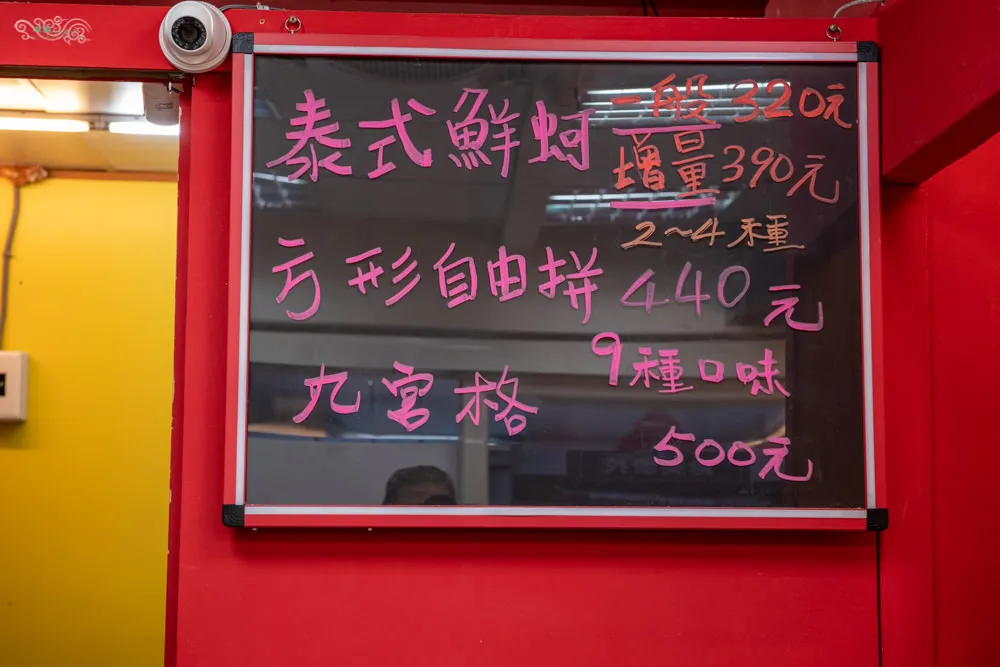 泰式鮮蚵 一般 320元
增量 390元
2~4種
方形自由拼 440元
9種口味
九宮格
500元